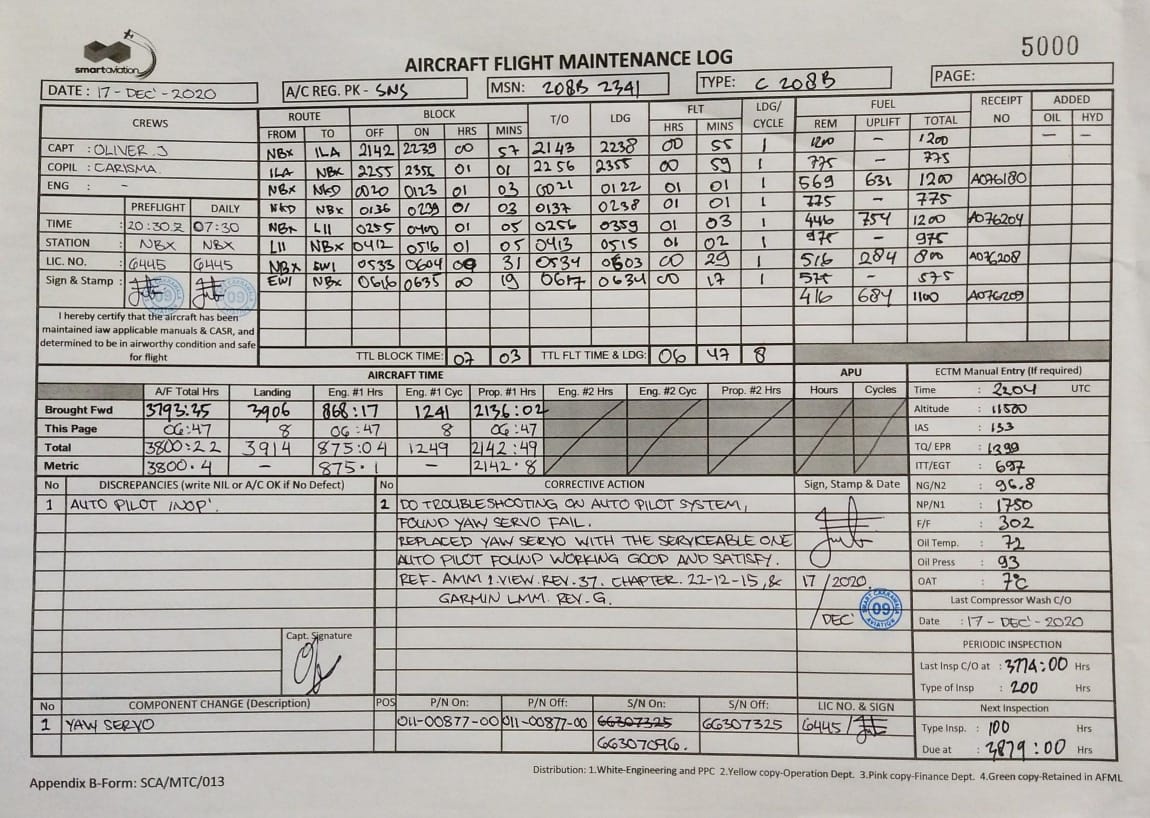 smartaviation
AIRCRAFT FLIGHT MAINTENANCE LOG
5000
DATE : 17 - DEC' - 2020
A/C REG. PK - SNS
MSN: 208B 2341
TYPE: C 208B
PAGE:
CREWS ROUTE BLOCK T/O LDG FLT LDG/CYCLE FUEL RECEIPT NO ADDED
FROM TO OFF ON HRS MINS HRS MINS REM UPLIFT TOTAL OIL HYD
CAPT : OLIVER.J
COPIL : CARISMA
ENG : -
NBX ILA 2142 2239 00 57 2143 2238 00 55 1 1200 - 1200 — —
ILA NBX 2255 2356 01 01 2256 2355 00 59 1 775 - 775
NBX NKD 0020 0123 01 03 0021 0122 01 01 1 569 631 1200 A076180
NKD NBX 0136 0239 01 03 0137 0238 01 01 1 775 - 775
NBX LII 0255 0400 01 05 0256 0359 01 03 1 446 754 1200 A076204
LII NBX 0412 0516 01 05 0413 0515 01 02 1 975 - 975
NBX EWI 0533 0604 00 31 0534 0603 00 29 1 516 284 800 A076208
EWI NBX 0616 0635 00 19 0617 0634 00 17 1 575 - 575
416 684 1100 A076209
PREFLIGHT DAILY
TIME : 20:30 z 07:30
STATION : NBX NBX
LIC. NO. : 6445 6445
Sign & Stamp : 09 09
I hereby certify that the aircraft has been
maintained iaw applicable manuals & CASR, and
determined to be in airworthy condition and safe
for flight
TTL BLOCK TIME: 07 03 TTL FLT TIME & LDG: 06 47 8
AIRCRAFT TIME APU
A/F Total Hrs Landing Eng. #1 Hrs Eng. #1 Cyc Prop. #1 Hrs Eng. #2 Hrs Eng. #2 Cyc Prop. #2 Hrs Hours Cycles
Brought Fwd 3793:35 3906 868:17 1241 2136:02
This Page 06:47 8 06:47 8 06:47
Total 3800:22 3914 875:04 1249 2142:49
Metric 3800.4 - 875.1 - 2142.8
ECTM Manual Entry (If required)
Time : 2204 UTC
Altitude : 11500
IAS : 133
TQ/ EPR : 1399
ITT/EGT : 697
NG/N2 : 96.8
NP/N1 : 1750
F/F : 302
Oil Temp. : 72
Oil Press : 93
OAT : 7°C
Last Compressor Wash C/O
Date : 17 - DEC' - 2020
PERIODIC INSPECTION
Last Insp C/O at : 3774:00 Hrs
Type of Insp : 200 Hrs
Next Inspection
Type Insp. : 100 Hrs
Due at : 3879:00 Hrs
No DISCREPANCIES (write NIL or A/C OK if No Defect)
1 AUTO PILOT INOP'.
Capt. Signature
No CORRECTIVE ACTION Sign, Stamp & Date
1 DO TROUBLESHOOTING ON AUTO PILOT SYSTEM,
FOUND YAW SERVO FAIL.
REPLACED YAW SERVO WITH THE SERVICEABLE ONE
AUTO PILOT FOUND WORKING GOOD AND SATISFY.
REF - AMM 1.VIEW. REV. 37. CHAPTER. 22-12-15, &
GARMIN LMM. REV. G.
17 / DEC' / 2020
SMART CAKRAWALA AVIATION 09
No COMPONENT CHANGE (Description) POS P/N On: P/N Off: S/N On: S/N Off: LIC NO. & SIGN
1 YAW SERVO 011-00877-00 011-00877-00 66307325 66307325 6445/
66307096.
Appendix B-Form: SCA/MTC/013
Distribution: 1.White-Engineering and PPC 2.Yellow copy-Operation Dept. 3.Pink copy-Finance Dept. 4.Green copy-Retained in AFML